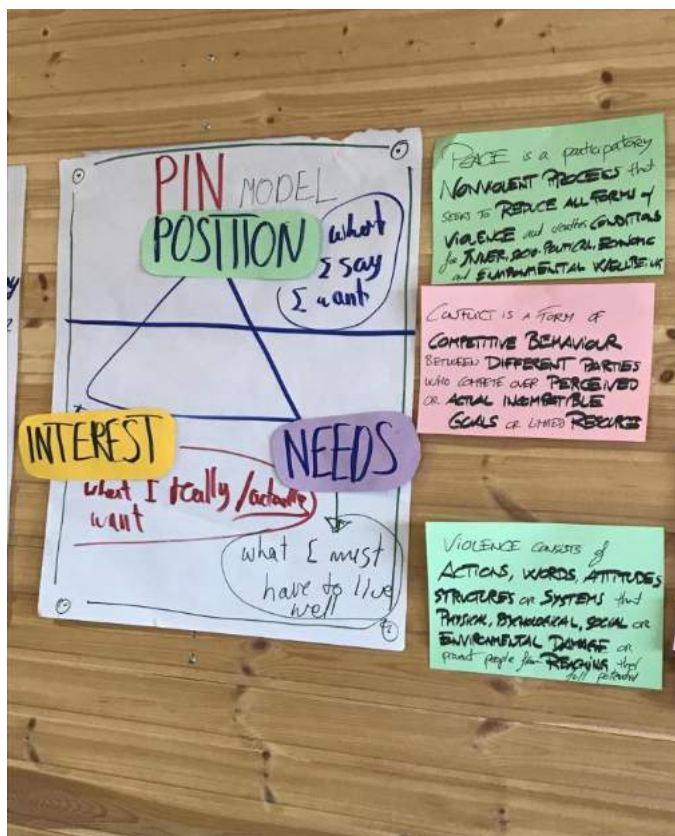 PIN MODEL
POSITION
what
I say
I want
INTEREST
NEEDS
what I really/actually
want
what I must
have to live
well
PEACE is a participatory
NONVIOLENT PROCESS that
seeks to REDUCE ALL FORMS of
VIOLENCE and creates CONDITIONS
for INNER, SOCIO-POLITICAL, ECONOMIC
and ENVIRONMENTAL WELLBEING
CONFLICT IS A FORM OF
COMPETITIVE BEHAVIOUR
BETWEEN DIFFERENT PARTIES
WHO COMPETE OVER PERCEIVED
OR ACTUAL INCOMPATIBLE
GOALS OR LIMITED RESOURCE
VIOLENCE CONSISTS of
ACTIONS, WORDS, ATTITUDES
STRUCTURES OR SYSTEMS that
PHYSICAL, PSYCHOLOGICAL, SOCIAL OR
ENVIRONMENTAL DAMAGE OR
prevent people from REACHING their
full potential